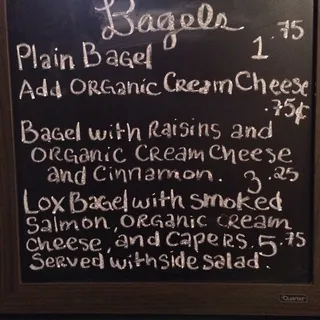 Bagels
Plain Bagel 1.75
Add ORGANIC Cream Cheese
.75¢
Bagel with Raisins and
ORGANIC CREAM CHEESE
and Cinnamon. 3.25
Lox Bagel with smoked
Salmon, ORGANIC CREAM
Cheese, and Capers. 5.75
Served with side salad.
Quartet